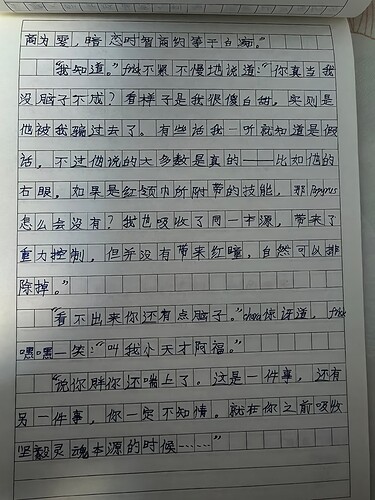 商为零，暗恋时智商约等于白痴。”
“我知道。”frisk不紧不慢地说道：“你真当我
没脑子不成？看样子是我很傻白甜，实则是
他被我骗过去了。有些话我一听就知道是假
话，不过他说的大多数是真的——比如他的
右眼。如果是红领巾所附带的技能，那papyrus
怎么会没有？我也吸收了同一本源，带来了
重力控制，但并没有带来红瞳，自然可以排
除掉。”
“看不出来你还有点脑子。”chara惊讶道，frisk
嘿嘿一笑：“叫我小天才阿福。”
“说你胖你还喘上了。这是一件事，还有
另一件事，你一定不知情。就在你之前吸收
坚毅灵魂本源的时候……”